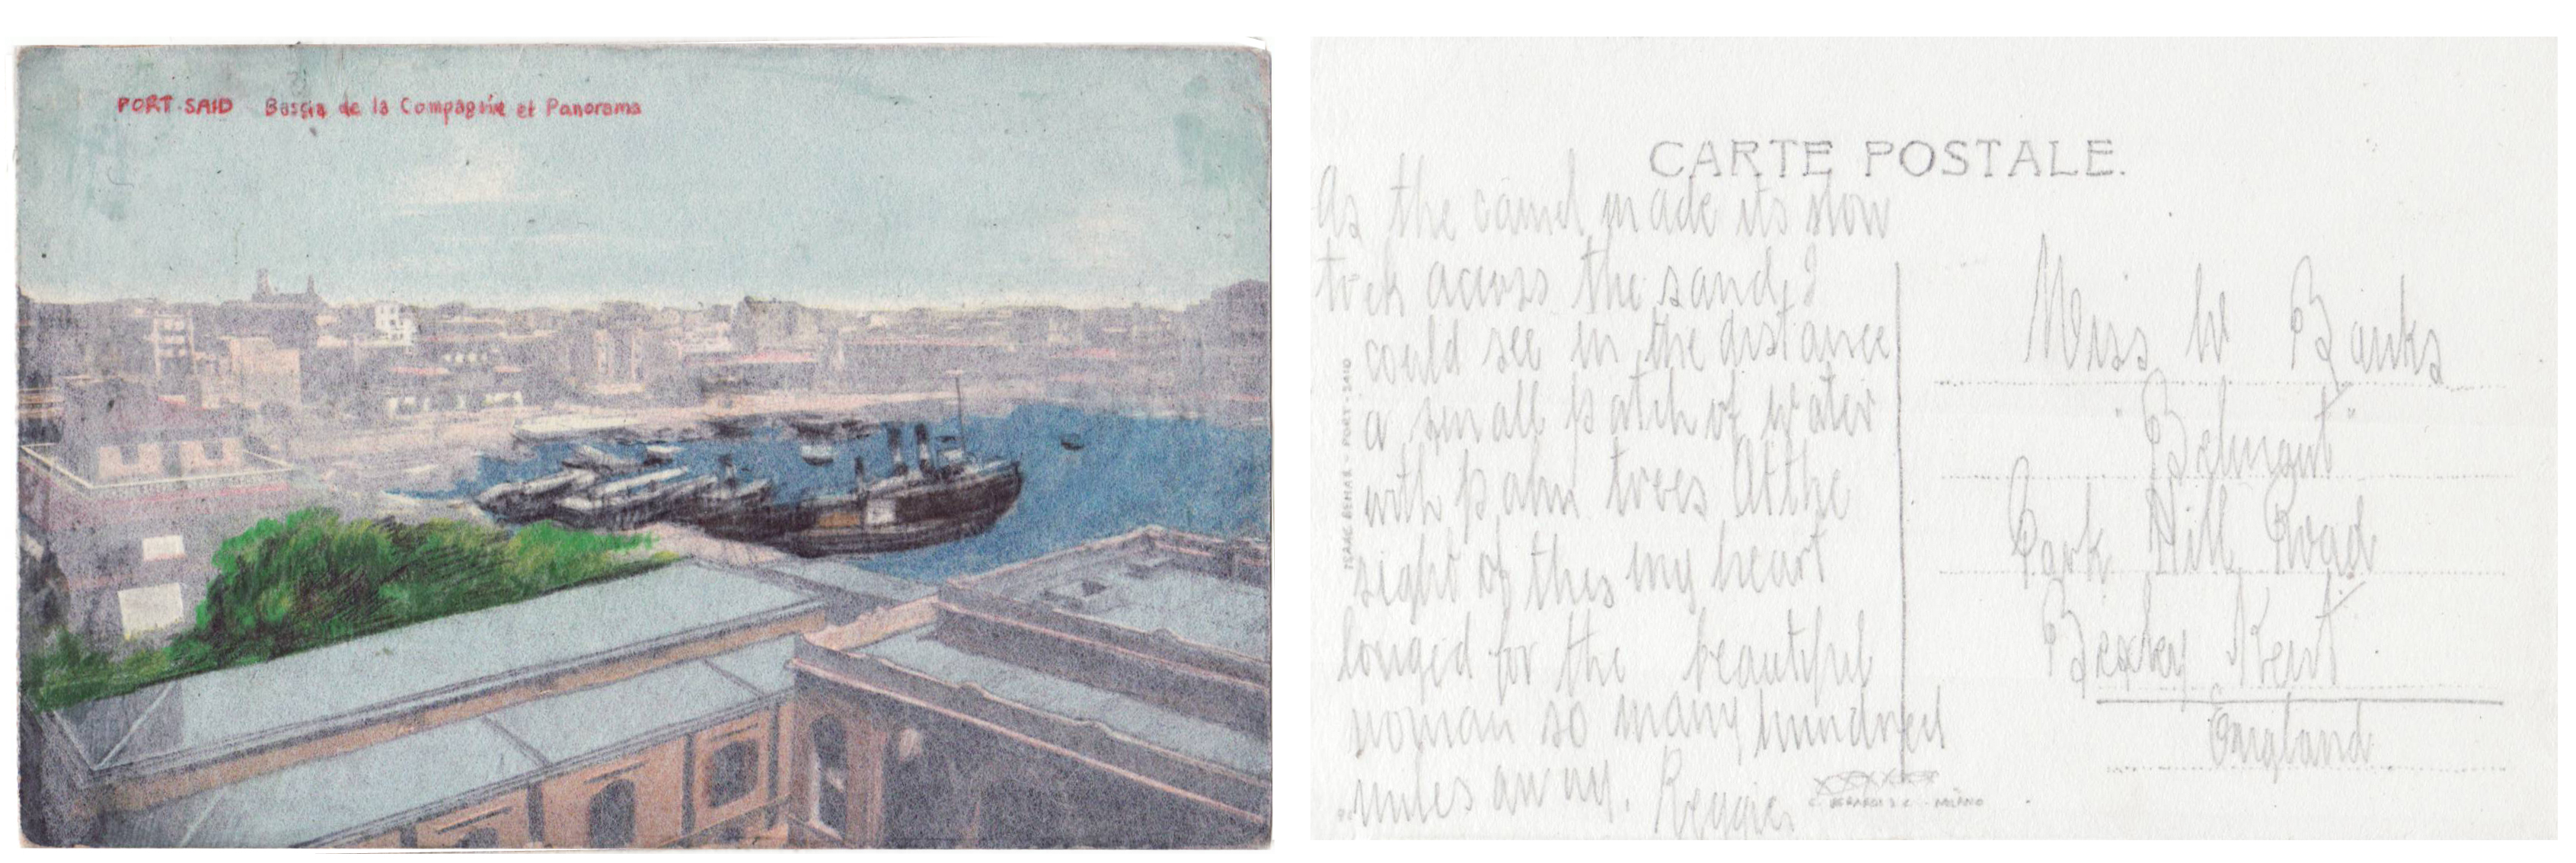 PORT-SAID Bassin de la Compagnie et Panorama
CARTE POSTALE.
As the camel made its slow
trek across the sand, I
could see in the distance
a small patch of water
with palm trees At the
sight of this my heart
longed for the beautiful
woman so many hundred
miles away. Reggie
ISAAC BEHAR - PORT-SAID
Miss W Banks
"Belmont"
Park Hill Road
Bexley Kent
England
MILANO